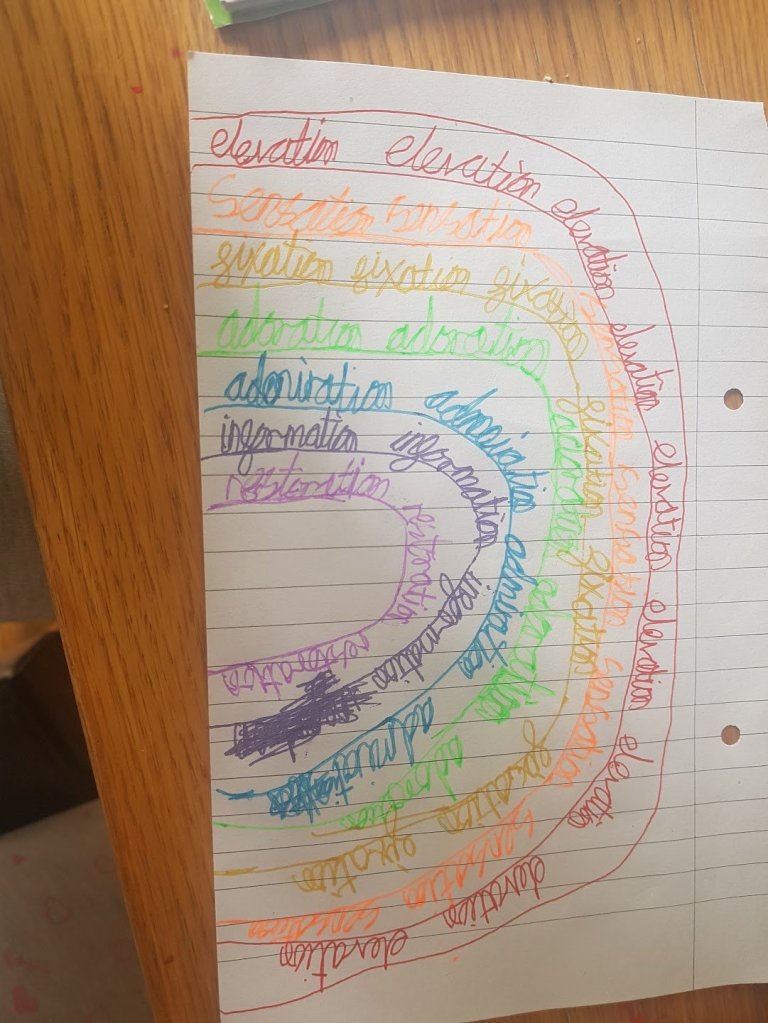 elevation elevation elevation elevation elevation elevation elevation elevation elevation
Sensation sensation sensation sensation sensation sensation sensation
fixation fixation fixation fixation fixation fixation fixation
adoration adoration adoration adoration adoration
admiration admiration admiration admiration
information information information
restoration restoration restoration